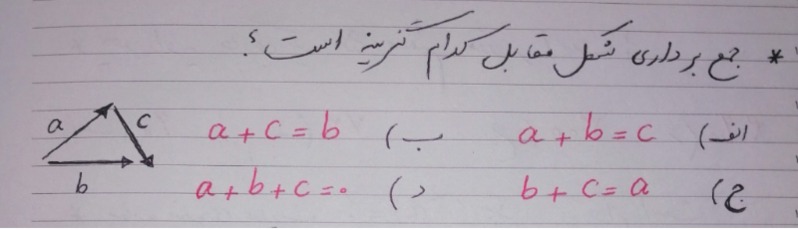 * جمع برداری شکل مقابل کدام گزینه است؟
الف) a + b = c ب) a + c = b
ج) b + c = a د) a + b + c = ۰
a c
b